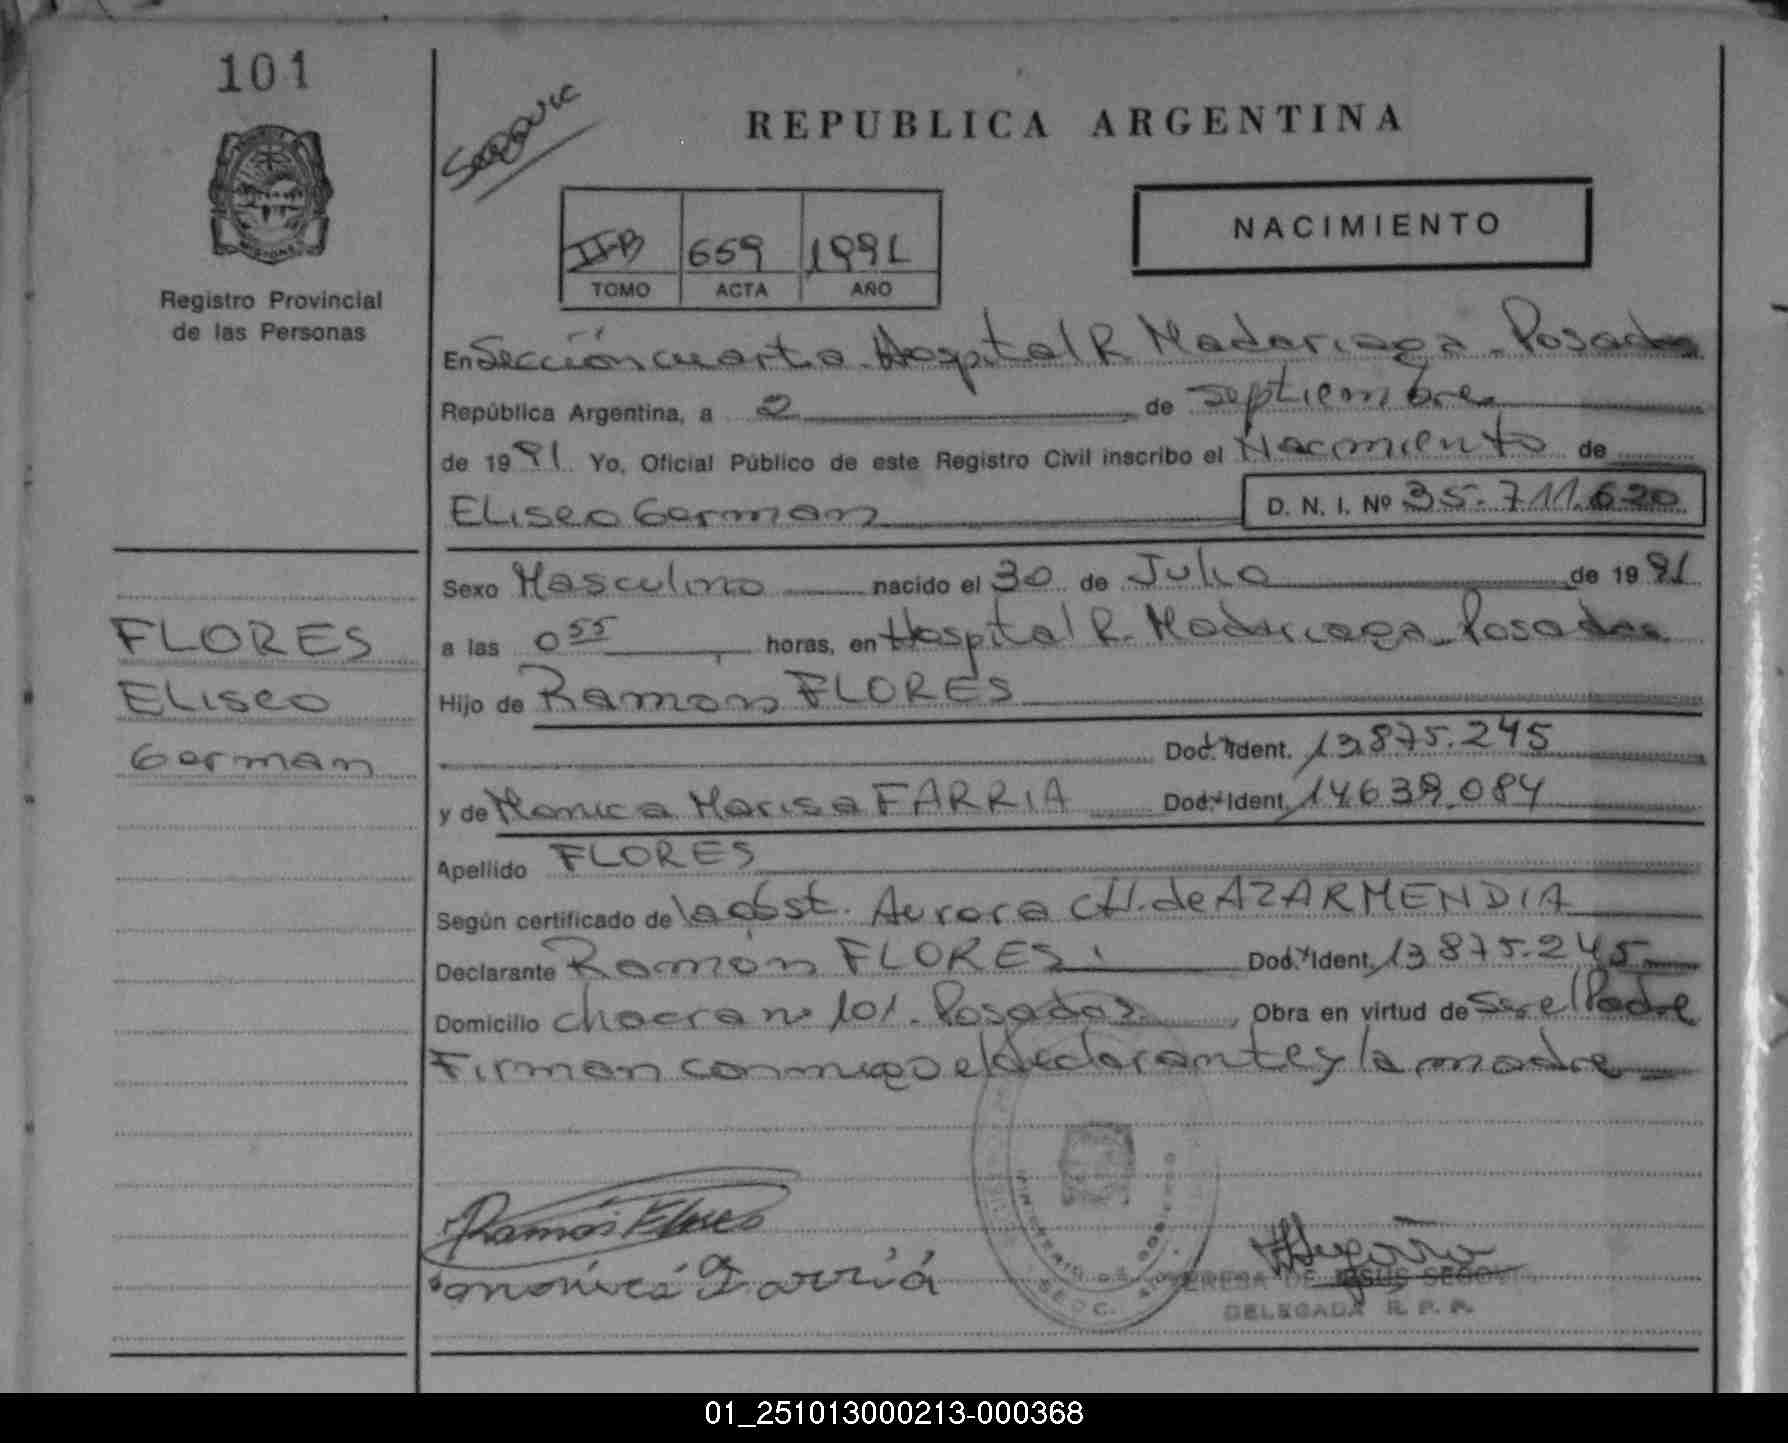 101
Segovic
REPUBLICA ARGENTINA
NACIMIENTO
II-B 659 1991
TOMO ACTA AÑO
Registro Provincial
de las Personas
En Sección cuarta Hospital R. Madariaga - Posadas
República Argentina, a 2 de septiembre
de 1991 Yo, Oficial Público de este Registro Civil inscribo el Nacimiento de
ELiseo German D. N. I. Nº 35.711.620
Sexo Masculino nacido el 30 de Julio de 1991
a las 0 55 horas, en Hospital R. Madariaga - Posadas
Hijo de Ramón FLORES
Doc. Ident. 13.875.245
y de Monica Marisa FARRIA Doc. Ident. 14.639.084
Apellido FLORES
Según certificado de la obst. Aurora CH. de AZARMENDIA
Declarante Ramón FLORES Doc. Ident. 13.875.245
Domicilio chacra nº 101. Posadas Obra en virtud de Ser el Padre
Firman conmigo el declarante y la madre
FLORES
ELiseo
German
Ramón Flores
Mónica Farriá
TERESA DE JESUS SEGOVIA
DELEGADA R. P. P.
MINISTERIO DE GOBIERNO
01_251013000213-000368